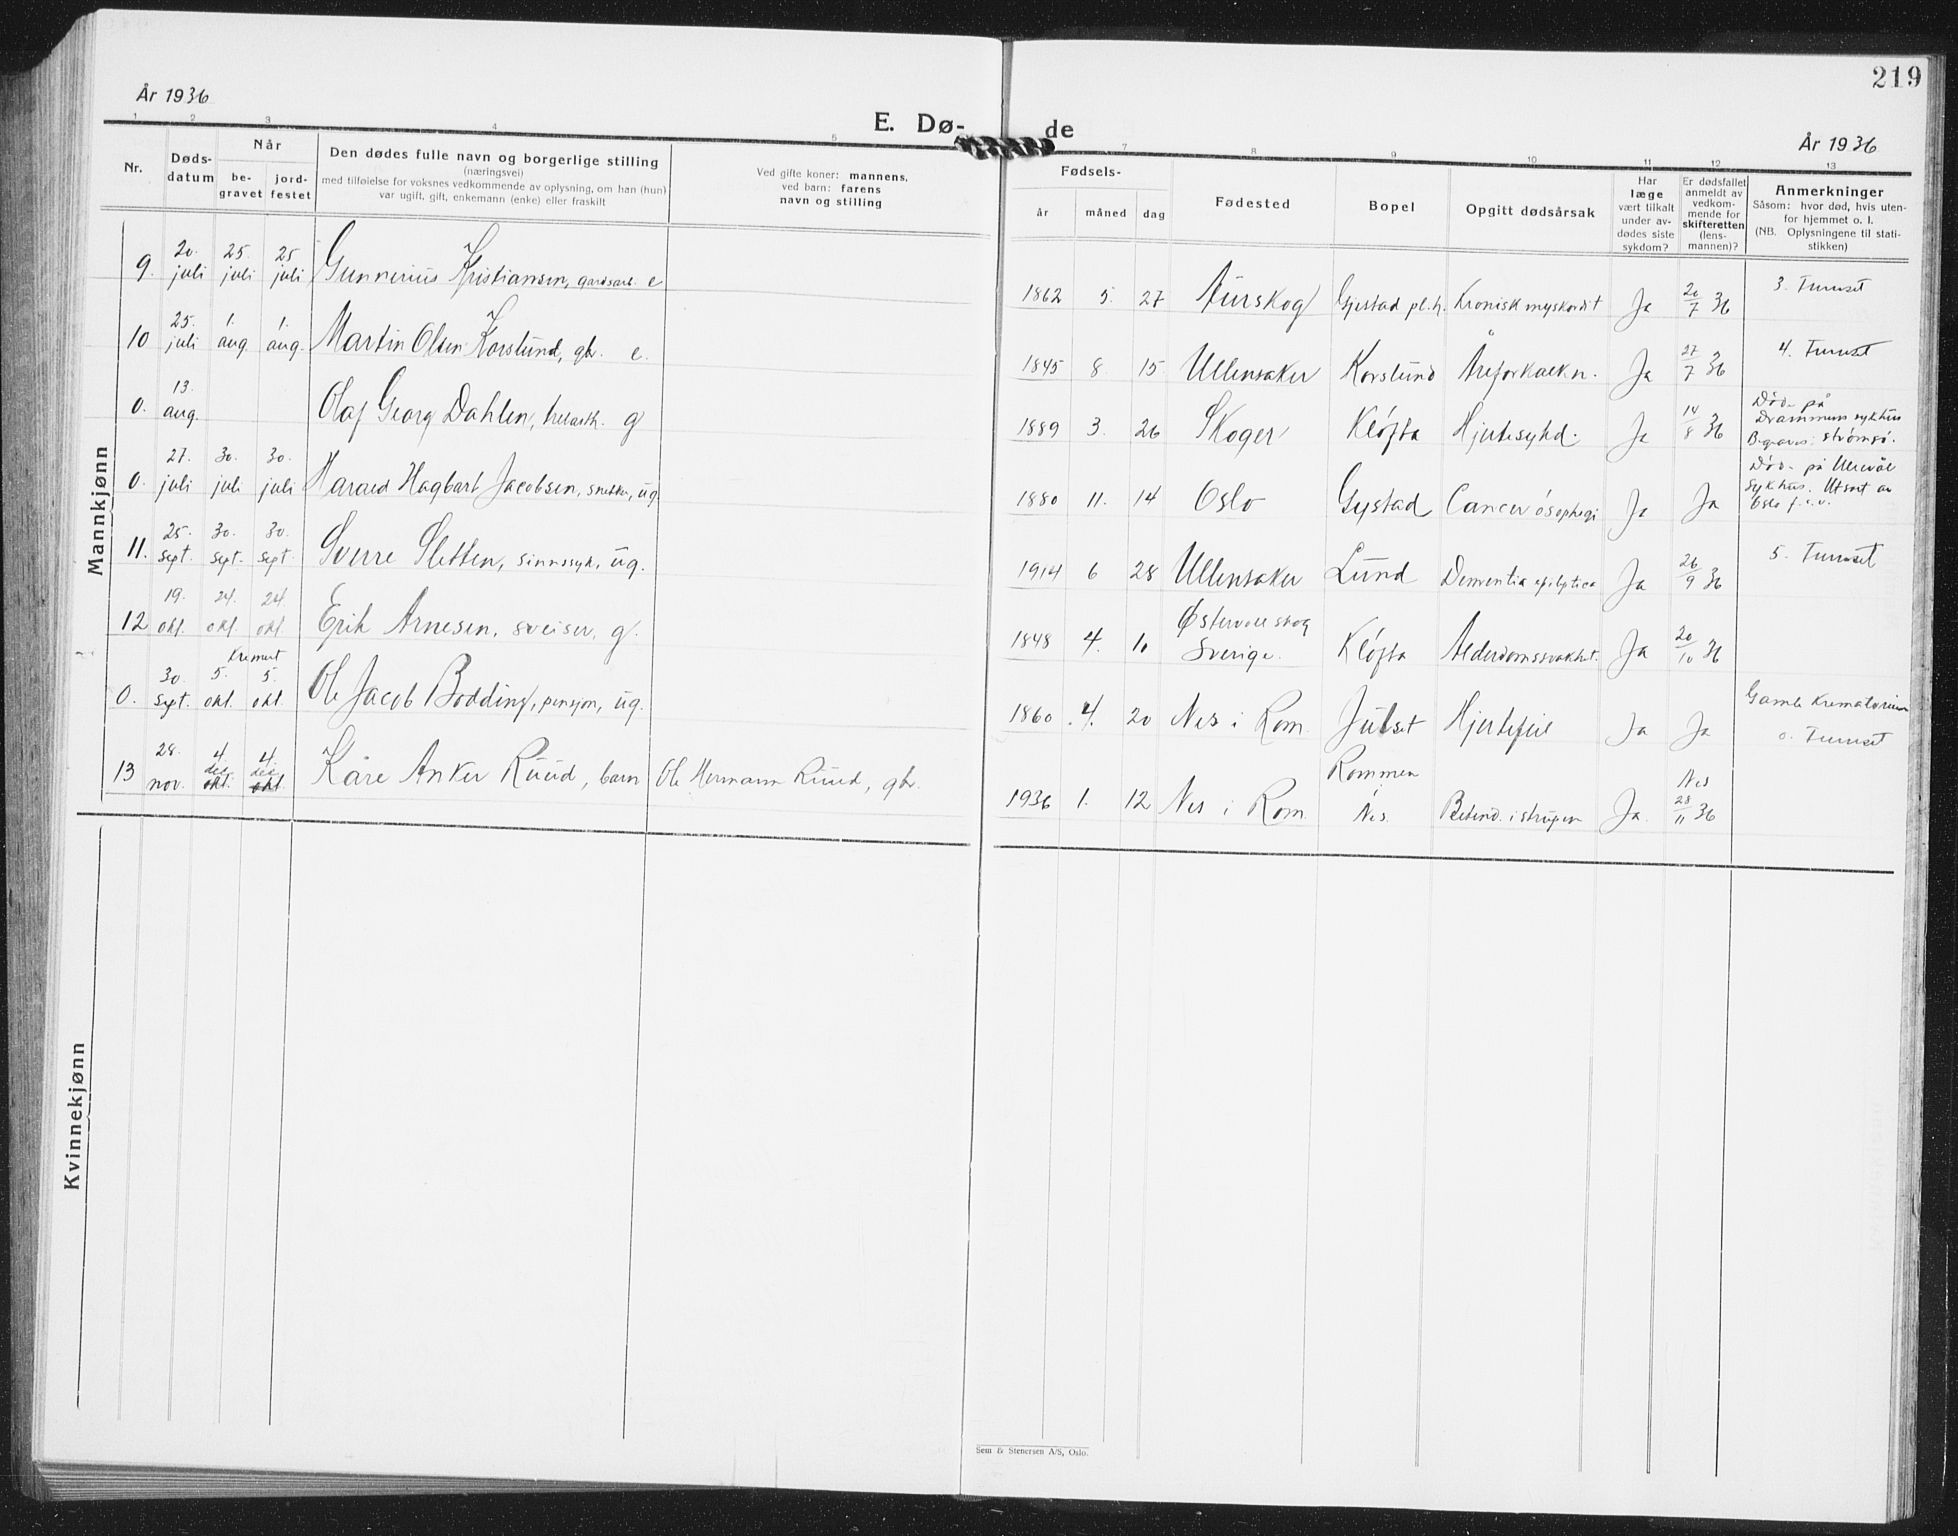 219
År 1936
E. Dø- de
År 1936
1 2 3 4 5 7 8 9 10 11 12 13
Nr.
Døds-
datum
Når
be-
gravet
jord-
festet
Den dødes fulle navn og borgerlige stilling
(næringsvei)
med tilføielse for voksnes vedkommende av oplysning, om han (hun)
var ugift, gift, enkemann (enke) eller fraskilt
Ved gifte koner: mannens,
ved barn: farens
navn og stilling
Fødsels-
år måned dag
Fødested
Bopel
Opgitt dødsårsak
Har
læge
vært tilkalt
under av-
dødes siste
sykdom?
Er dødsfallet
anmeldt av
vedkom-
mende for
skifteretten
(lens-
mannen)?
Anmerkninger
Såsom: hvor død, hvis uten-
for hjemmet o. l.
(NB. Oplysningene til stati-
stikken)
Mannkjønn
9. 20. juli 25. juli 25 juli Gunnerius Kristiansen, gardsarb. e 1862 5. 27 Aurskog Gjestad pl.h. Kronisk myokardit Ja 20/7 36 3. Furuset
10 25. juli 1. aug. 1. aug. Martin Olsen Korslund, gbr. e. 1845 8. 15. Ullensaker Korslund Åreforkalkn. Ja 27/7 36 4. Furuset
0. 13. aug. Olaf Georg Dahlen, g 1889 3. 26 Skoger Kløfta Hjertesykd. Ja 14/8 36 Død på
Drammens sykhus
Begraves: Strømsø.
0. 27. juli 30. juli 30. juli Harald Hagbart Jacobsen, snekker, ug. 1880 11. 14 Oslo Gystad Cancer øsophagi Ja Ja Død på Ullevål
sykhus. Utsat av
Oslo f.v.
11. 25. sept. 30. sept. 30. sept. Sverre Sletten, sinnssyk, ug. 1914 6 28 Ullensaker Lund Dementia epileptica Ja 26/9 36 5. Furuset
12 19. okt. 24. okt. 24 okt. Erik Arnesen, sveiser, g. 1848 4. 10
Sverige. Kløfta Alderdomssvakhet. Ja 20/10 36
Kremert
0. 30. sept. 5. okt. 5. okt. Ole Jacob Bodding, pensjon, ug. 1860 4. 20 Nes i Rom. Julset Hjertefeil Ja Ja Gamle Krematorium
o. Furuset
13 28. nov. 4. des. okt. 4. des. okt. Kåre Anker Ruud, barn Ole Hermann Ruud, gbr. 1936 1. 12 Nes i Rom. Rommen
Nes. Betend. i strupen Ja. Nes
28/11 36
Kvinnekjønn
Sem & Stenersen A/S, Oslo.